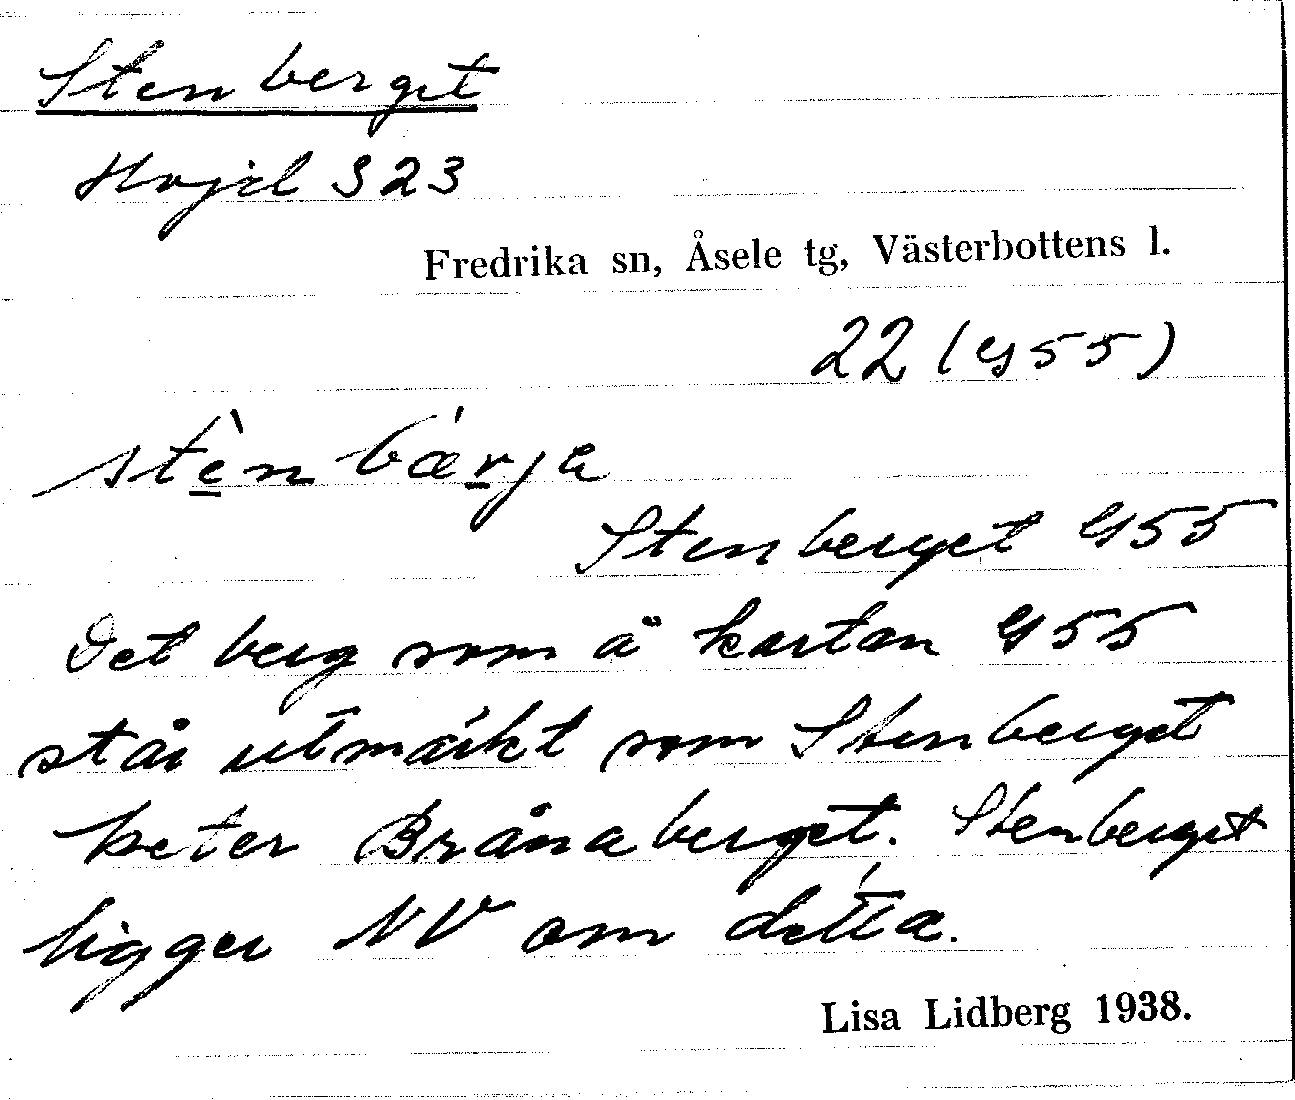 Stenberget
Höjd 323
Fredrika sn, Åsele tg, Västerbottens l.
22 (G55)
stènbæ̀rja
Stenberget G55
Det berg som å kartan G55
står utmärkt som Stenberget
heter Brånaberget. Stenberget
ligger NV om detta.
Lisa Lidberg 1938.